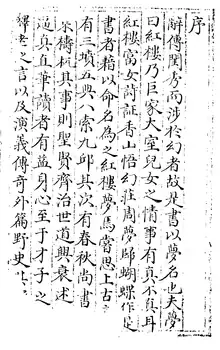 序
辭傳閨秀而涉於幻者故是書以夢名也夫夢
曰紅樓乃巨家大室兒女之情事有真不真耳
紅樓富女詩証香山悟幻莊周夢歸蝴蝶作是
書者藉以命名為之紅樓夢焉嘗思上古之
有三墳五典八索九邱其次有春秋尚書
乘檮杌其事則聖賢齊治世道興衰述
逼真直筆讀者有益身心至于才子之
釋老之言以及演義傳奇外篇野史其